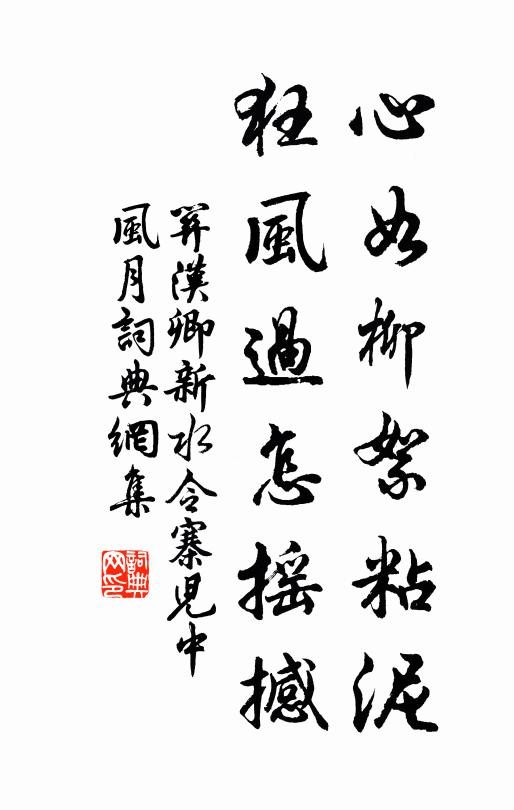 心如柳絮粘泥
狂風過怎搖撼
關漢卿新水令寨児中
風月詞典網集
詞典網印